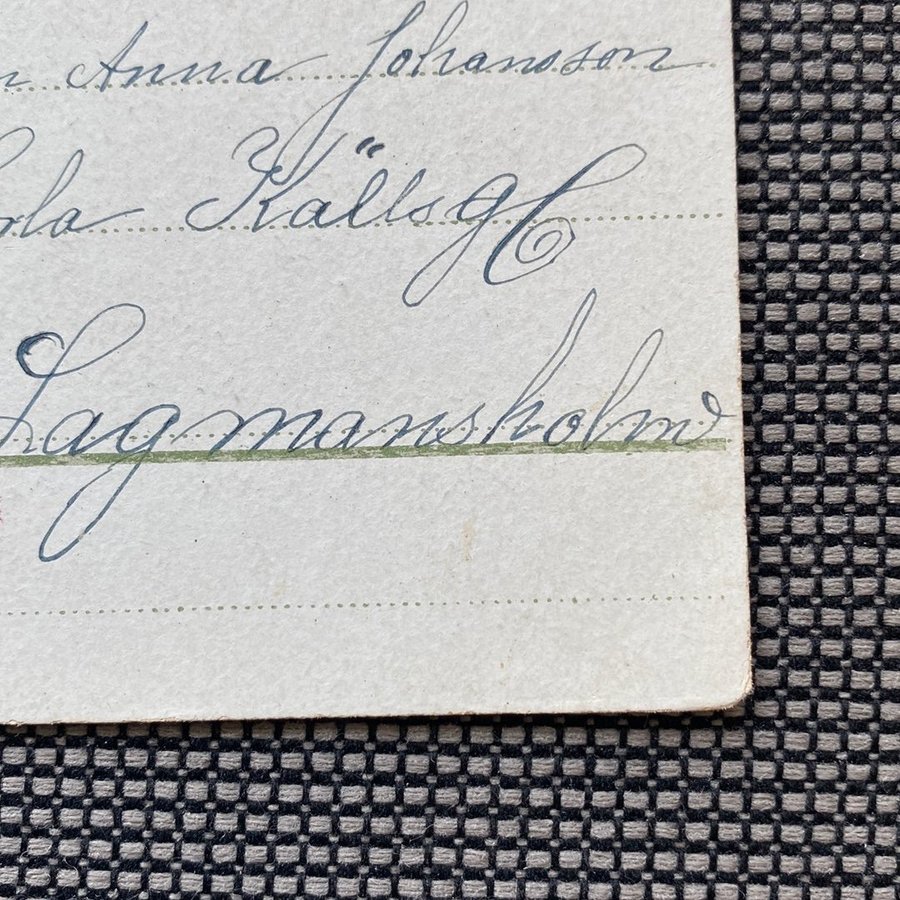 Anna Johansson
Källsg
Lagmansholm